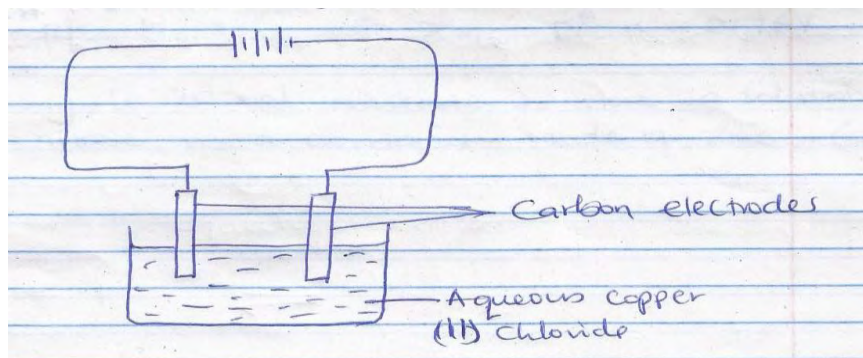 Carbon electrodes
Aqueous copper
(II) chloride